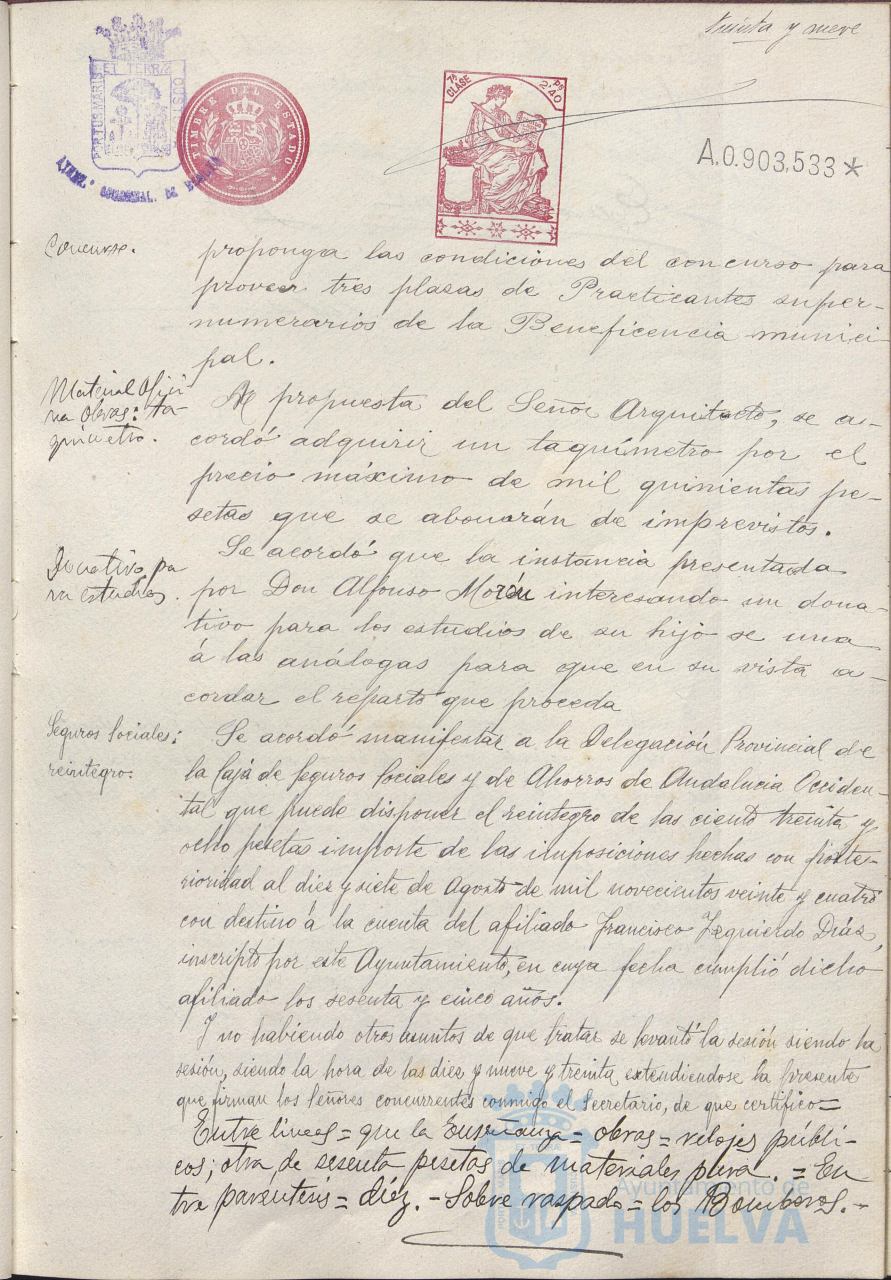 treinta y nueve
PORTUS MARIS ET TERRÆ CUSTODIO
AYUNT. CONSTNAL. DE HUELVA
TIMBRE DEL ESTADO
7ª CLASE
Ps 2,40
A.0.903,533*
Concurso.
proponga las condiciones del concurso para
proveer tres plasas de Practicantes super-
numerarios de la Beneficencia munici-
pal.
Material Ofici-
na Obras: ta-
quimetro.
A propuesta del Señor Arquitecto, se a-
cordó adquirir un taquímetro por el
precio máximo de mil quinientas pe-
setas que se abonarán de imprevistos.
Donativo pa
ra estudios.
Se acordó que la instancia presentada
por Don Alfonso Morón interesando un dona-
tivo para los estudios de su hijo se una
á las análogas para que en su vista a-
cordar el reparto que proceda
Seguros Sociales:
reintegro.
Se acordó manifestar a la Delegación Provincial de
la Caja de Seguros Sociales y de Ahorros de Andalucia Occiden-
tal que puede disponer el reintegro de las ciento treinta y
ocho pesetas importe de las imposiciones hechas con poste-
rioridad al diez y siete de Agosto de mil novecientos veinte y cuatro
con destino á la cuenta del afiliado Francisco Izquierdo Diáz,
inscripto por este Ayuntamiento, en cuya fecha cumplió dicho
afiliado los sesenta y cinco años.
Y no habiendo otros asuntos de que tratar se levantó la sesión siendo ha
sesión, siendo la hora de las diez y nueve y treinta extendiendose la presente
que firman los Señores concurrentes conmigo el Secretario, de que certifico=
Entre lineas = que la Enseñanza = obras = relojes públi-
cos; otra, de sesenta pesetas de materiales para. = En
tre parentesis = diéz. - Sobre raspado = los Bomberos. -
Ayuntamiento de
HUELVA